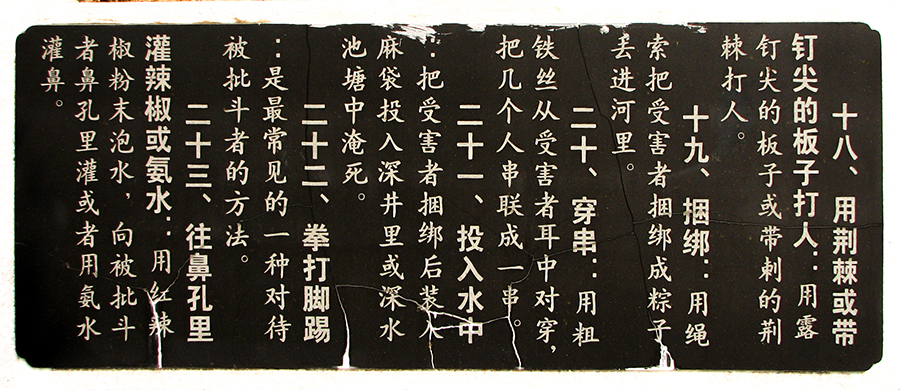 十八、用荆棘或带
钉尖的板子打人：用露
钉尖的板子或带刺的荆
棘打人。
十九、捆绑：用绳
索把受害者捆绑成粽子
丢进河里。
二十、穿串：用粗
铁丝从受害者耳中对穿，
把几个人串联成一串。
二十一、投入水中
：把受害者捆绑后装入
麻袋投入深井里或深水
池塘中淹死。
二十二、拳打脚踢
：是最常见的一种对待
被批斗者的方法。
二十三、往鼻孔里
灌辣椒或氨水：用红辣
椒粉末泡水，向被批斗
者鼻孔里灌或者用氨水
灌鼻。